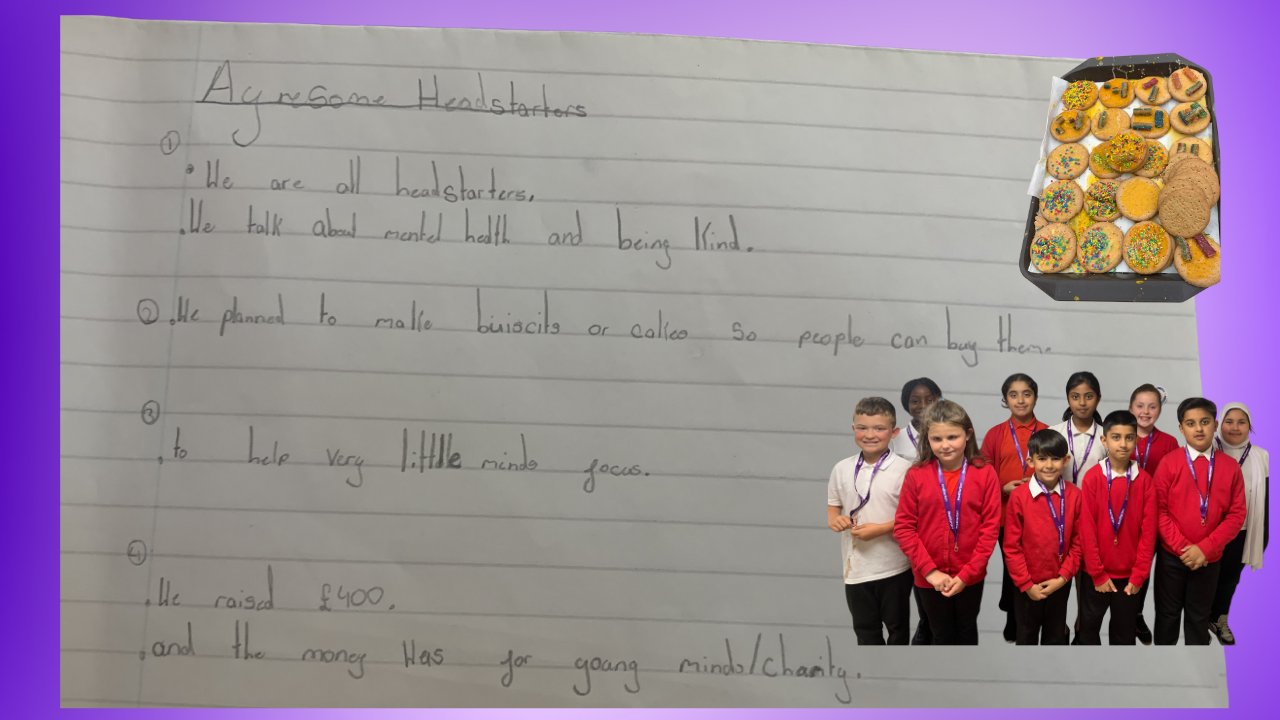 Ayresome Headstarters
①
• We are all headstarters.
• We talk about mental health and being kind.
② • We planned to make biuiscits or cakes so people can buy them.
③
• to help very little minds focus.
④
• We raised £400.
• and the money was for young minds/charity.